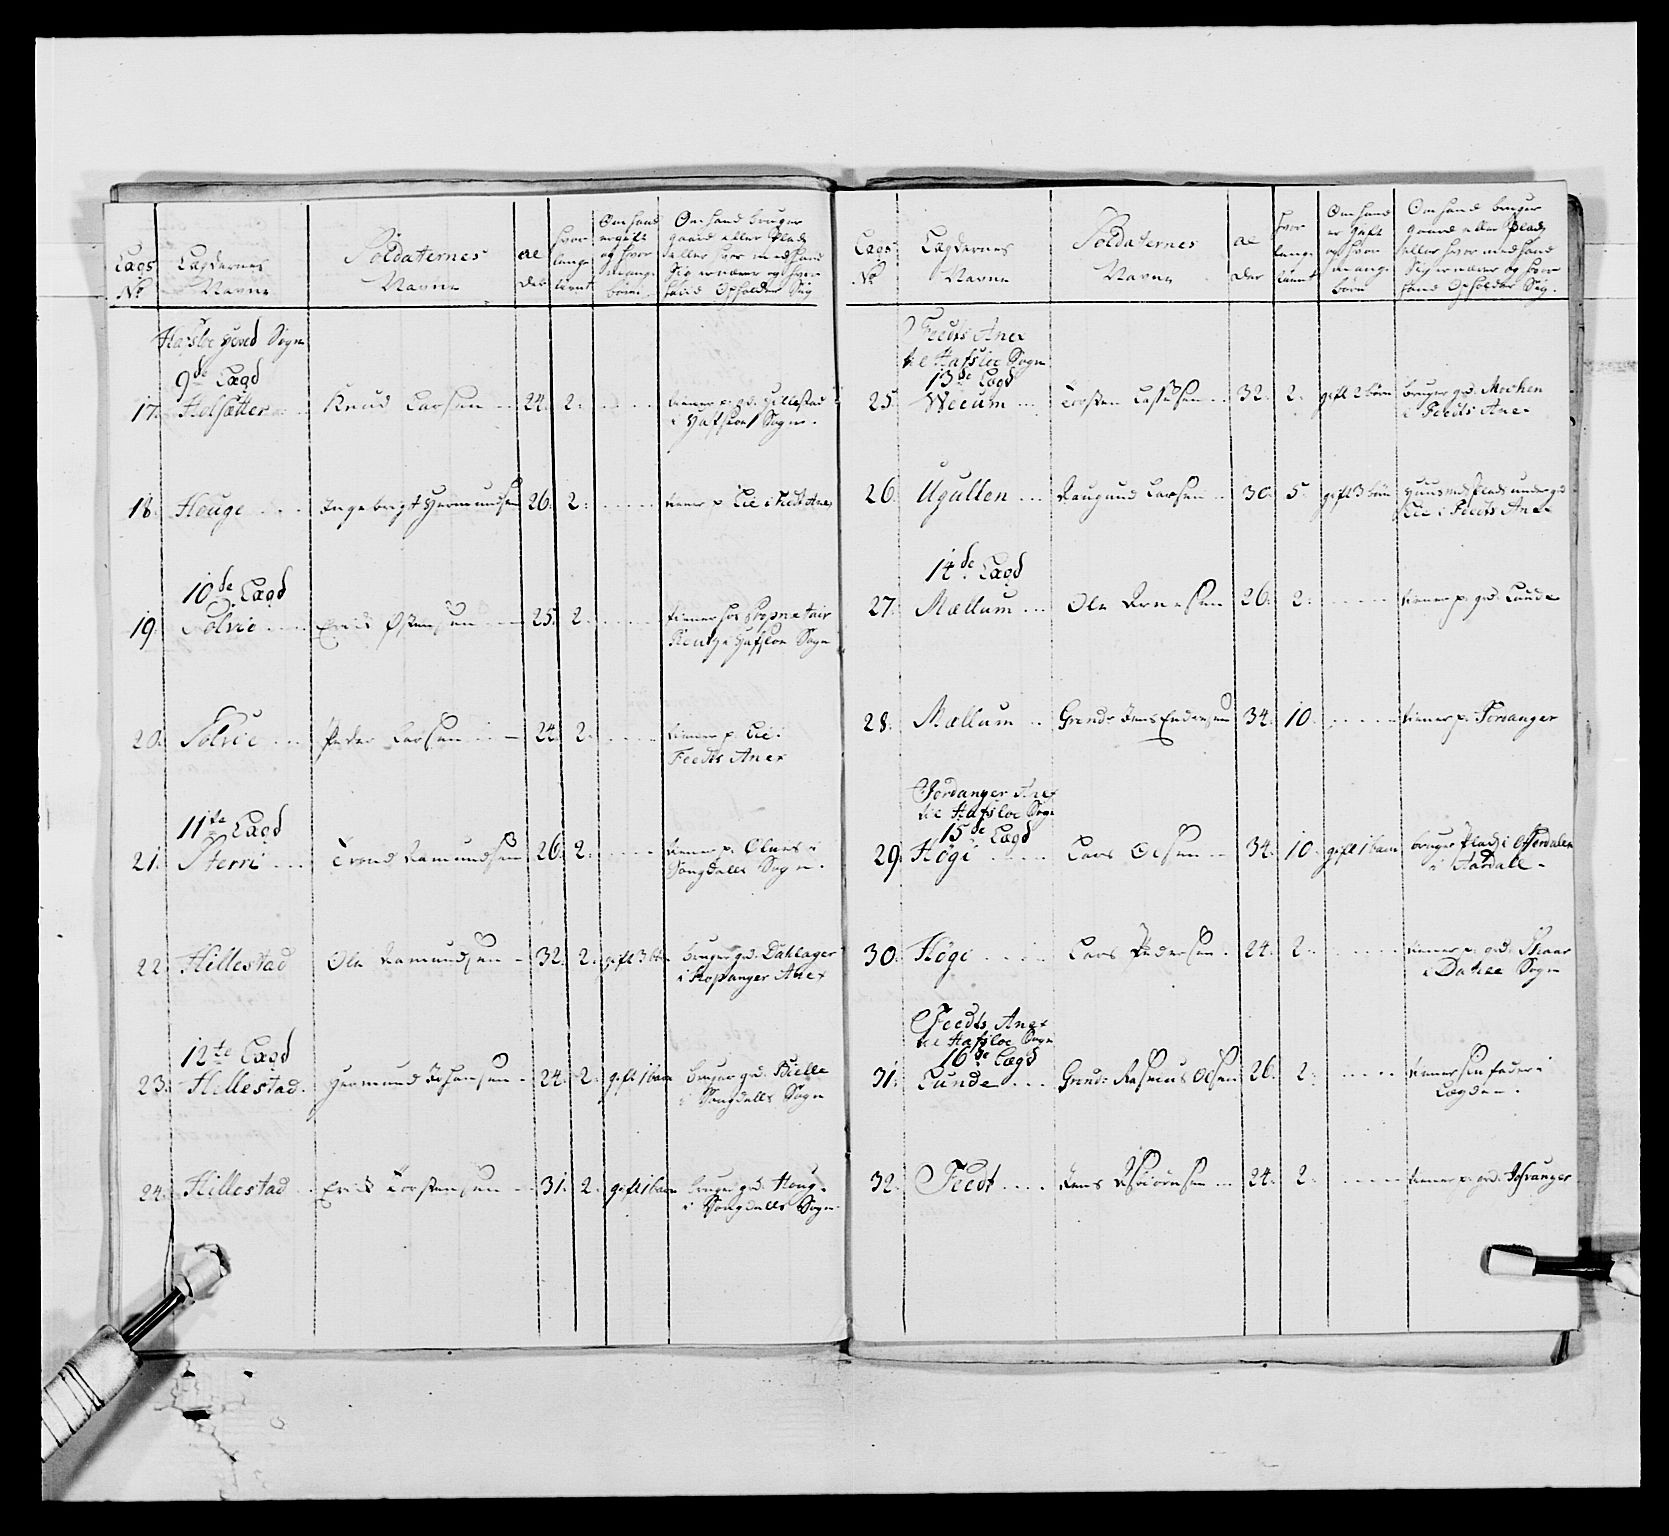 Lægs No | Lægdernes Navne | Soldaternes Navne | al der | hvor længe tient | Om hand er gift og hvor mange børn | Om hand bruger gaard eller Plads eller hvor med hand Sig ernærer og hvor hand Opholder Sig
Hafsloe hoved Sogn
9de Lægd
17. Helsætter | Knud Larsen | 24. | 2. | tiener p. gd. Hillestad i Hafsloe Sogn.
18. Houge | Ingebrigt Hermundsen | 26. | 2. | tiener p. Lie i Feets Anex
10de Lægd
19. Solvie | Erich Østensen | 25. | 2. | tiener hos Proprietair i Hafsloe Sogn
20. Solvie | Peder Larsen | 24. | 2. | tiener p. Lie i
Feedts Anex
11te Lægd
21. Sterri | Trond Ramundsen | 26. | 2. | tiener p. Olnes i
Songdals Sogn.
22. Hillestad | Ole Ramundsen | 32. | 2. | gift 3 bør | bruger gd. Dahlager
i Kopanger Anex
12te Lægd
23. Hillestad. | Hermund Johansen | 24. | 2. | gift 1 barn | bruger gd. Bielle
i Songdalls Sogn
24. Hillestad | Erich Torstensen | 31. | 2. | gift 1 barn | bruger gd. Houg
i Songdalls Sogn.
Lægs No | Lægdernes Navne | Soldaternes Navne | al der | hvor længe tient | Om hand er gift og hvor mange børn | Om hand bruger gaard eller Plads eller hvor med hand Sig ernærer og hvor hand Opholder Sig.
Feedts Anex
til Hafsloe Sogn
13de Lægd
25. Weeum | Torsten Lassesen | 32. | 2. | gift 2 børn | bruger gd. Morken
i Feedts Anex
26. Ugullen | Raugund Larsen | 30. | 5. | gift 3 børn | Huusmds Plads under gd
Lie i Feedts Anex
14de Lægd
27. Mællum | Ole Arnesen | 26. | 2. | tiener p. gd. Lunde
28. Mællum | Grend: Jens Endresen | 34. | 10. | tiener p. Sorvanger
Sorvanger Anex
til Hafsloe Sogn
15de Lægd
29. Høgi | Lars Olsen | 34. | 10. | gift 1 barn | bruger Plads i Offerdalen
i Aardall
30. Høgi | Lars Pedersen | 24. | 2. | tiener p. gd. Skaar
i Dahle Sogn
Feedts Anex
til Hafsloe Sogn
16de Lægd
31. Lunde | Grend: Rasmus Olsen | 26. | 2. | tiener sin fader i
Lægden.
32. Feedt | Jens Asbiørnsen | 24. | 2. | tiener p. grd.